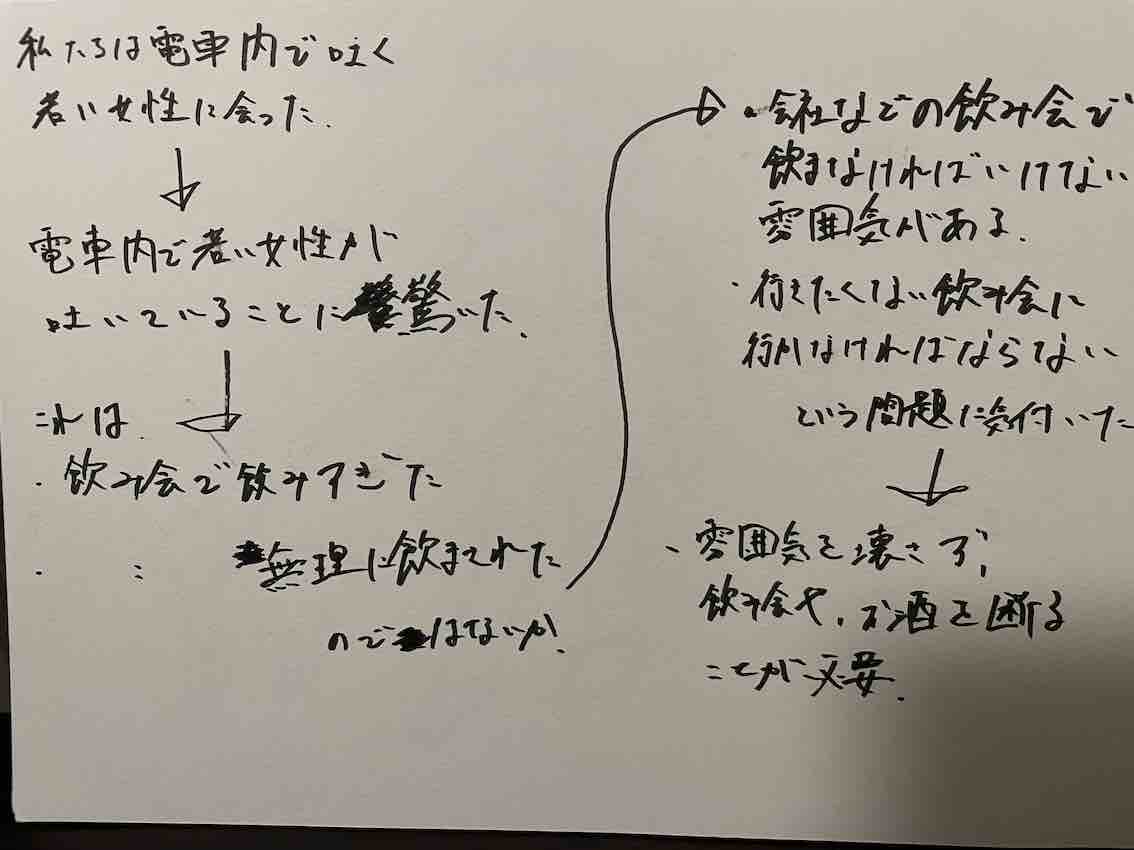 私たちは電車内で吐く
若い女性に会った.
電車内で若い女性が
吐いていることに驚いた.
これは
・飲み会で飲みすぎた
・　：　無理に飲まされた
のではないか.
・会社などの飲み会で
飲まなければいけない
雰囲気がある.
・行きたくない飲み会に
行かなければならない
という問題に気付いた
、雰囲気を壊さず,
飲み会や,お酒を断る
ことが必要.